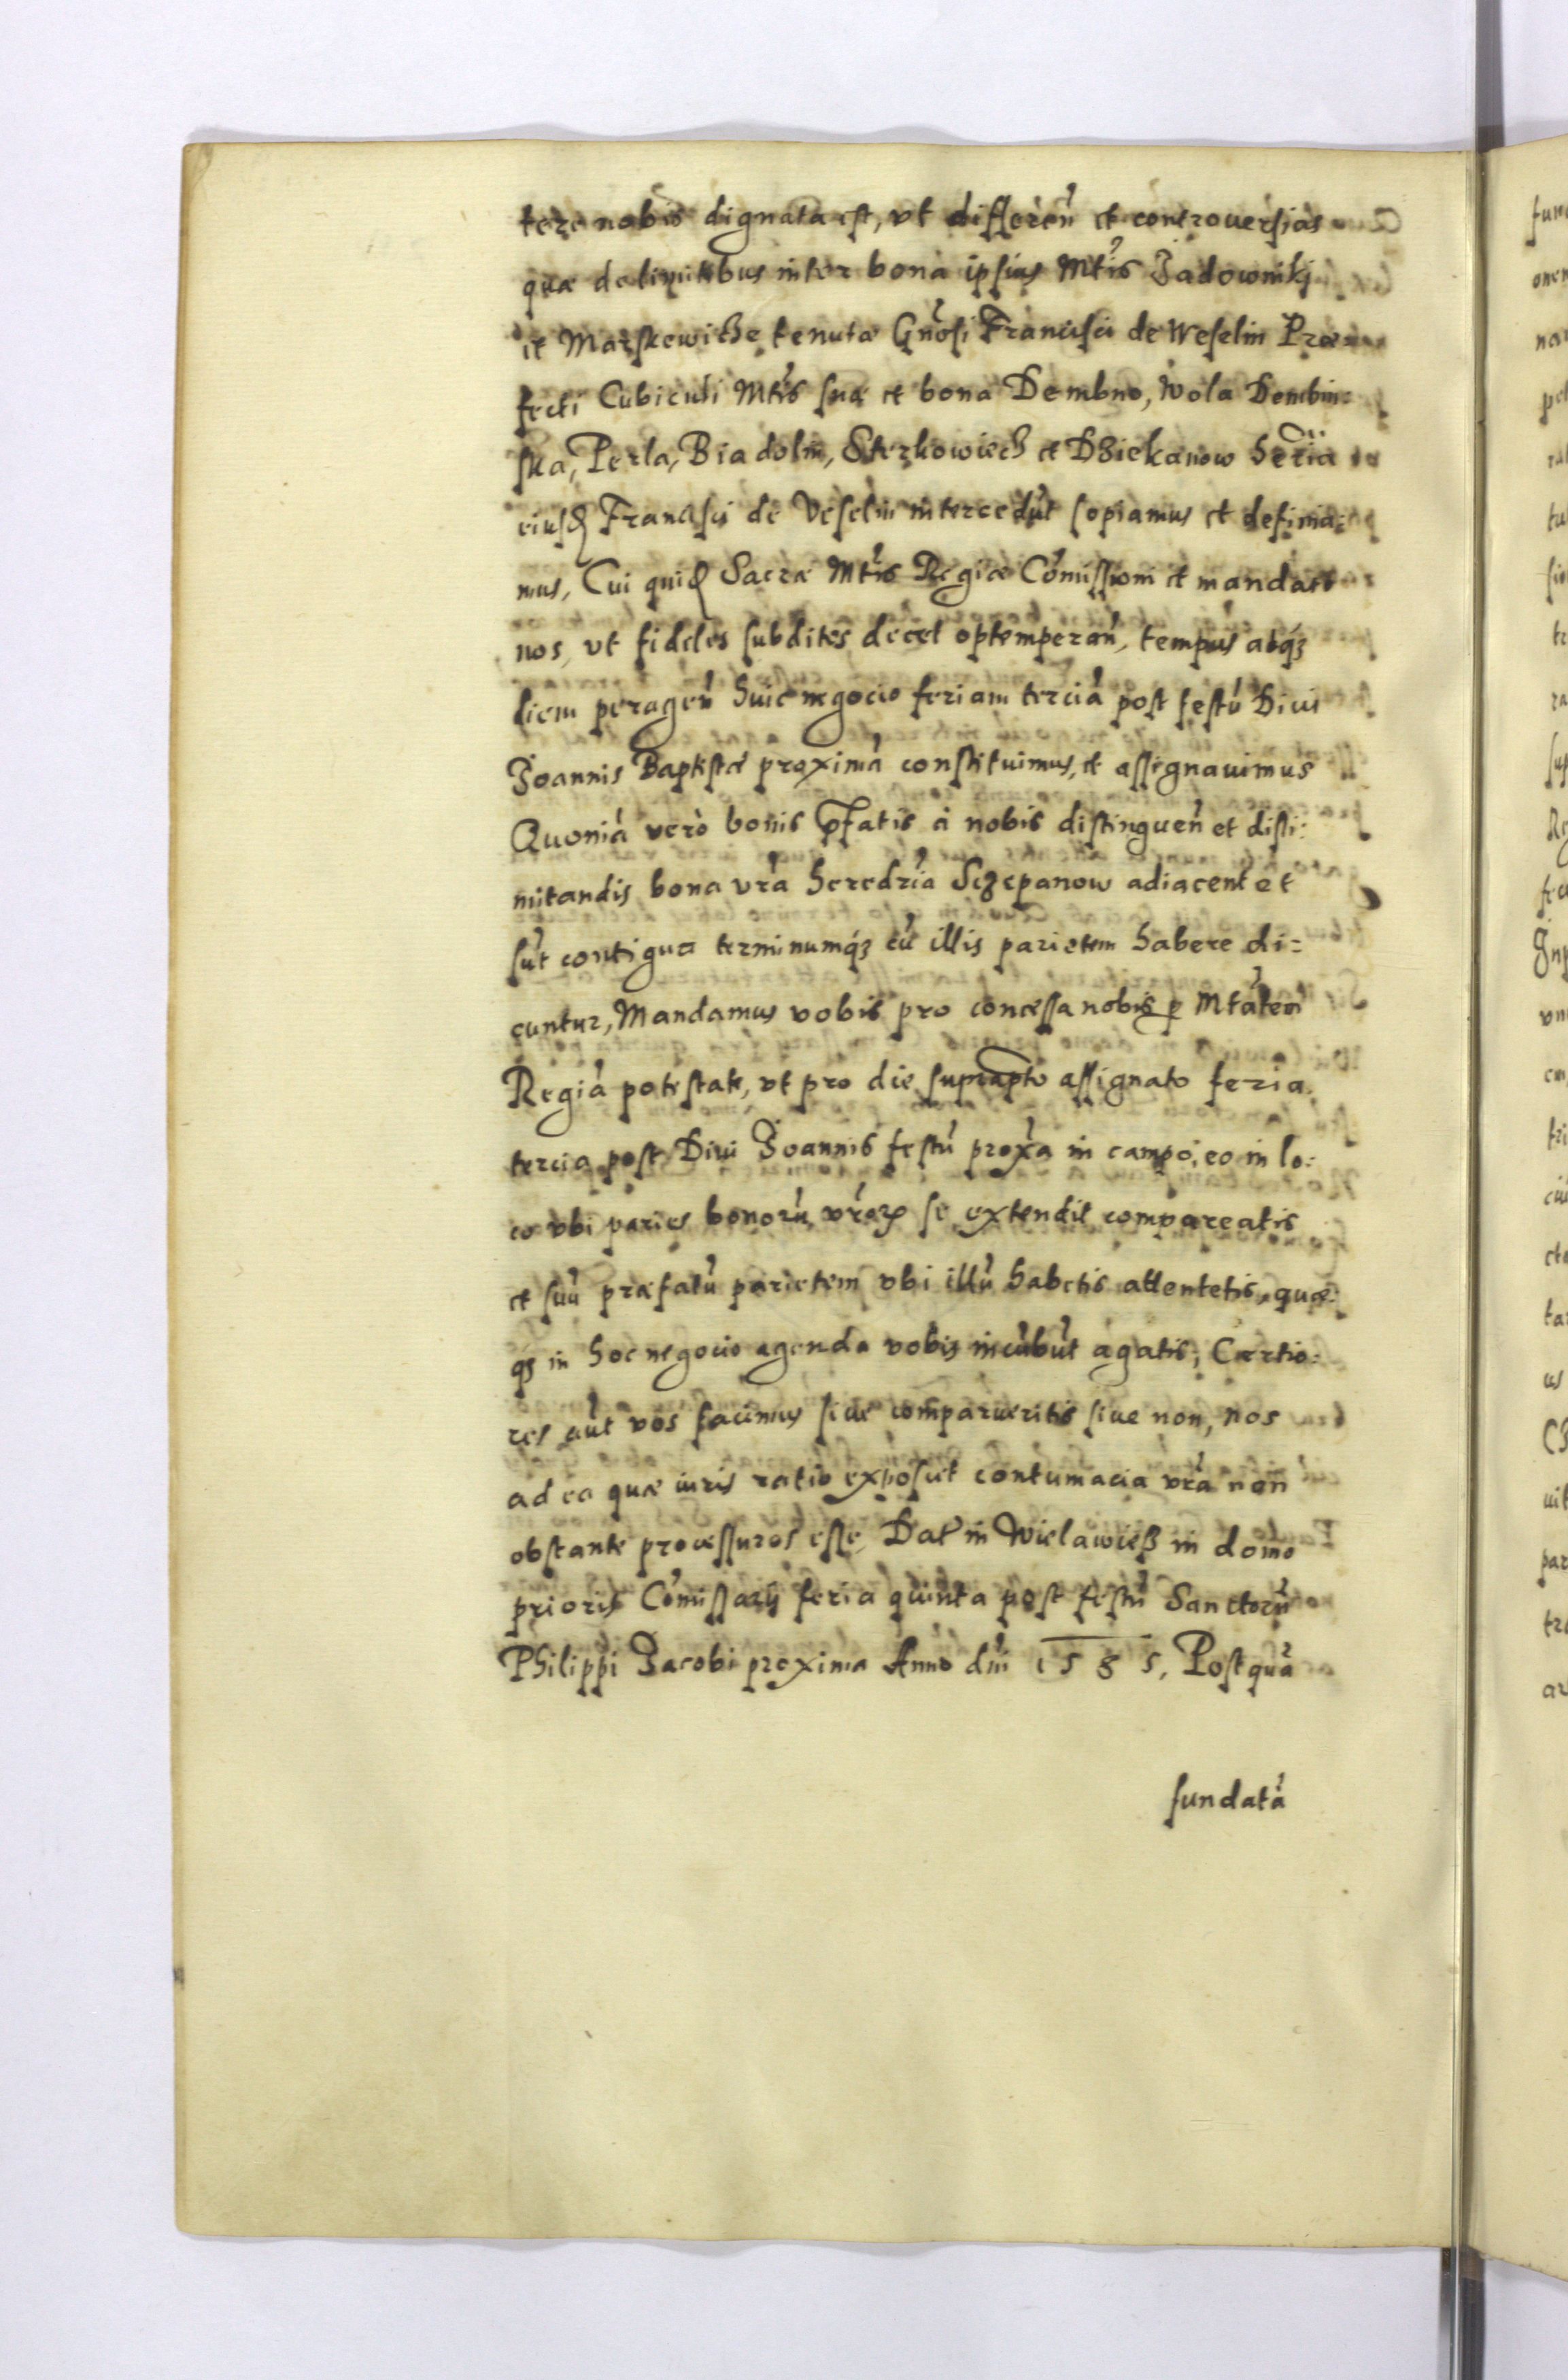 tere nobis dignata est, vt differen̄ et controuersias
quæ de limitibus inter bona ipsius Mtis Jadownikj
et Marskewicze tenutæ Gn̄osi Francisci de Weselin Præ=
fecti Cubiculi Mtis suæ et bona Dembno, Wola Dembin=
ska, Perla, Biadolin, Sterkowiech et Dziekanow her̄ia
eiusd Francisci de Veselin intercedūt sopiamus et definia=
mus, Cui quid Sacræ Mtis Regiæ Com̄issioni et mandato
nos, vt fideles subditos decet optemperan̄, tempus atq₃
diem peragen̄ huic negocio feriam terciā post festū Diui
Joannis Baptistæ proximā constituimus, et assignauimus
Quoniā verò bonis p̄fatis à nobis distinguen̄ et disli=
mitandis bona vr̄a heredr̄ia Sczepanow adiacent et
sūt contigua terminumq₃ cū illis parietem habere di=
cuntur, Mandamus vobis pro concessa nobis ꝑ Mtātem
Regiā potestate, vt pro die suprapto assignato feria
tercia post Diui Joannis festū prox̄a in campo, eo in lo=
co vbi paries bonorū vr̄orꝝ se extendit compareatis
et suū præfatū parietem vbi illū habetis attentetis, quæ=
q₃ in hoc negocio agenda vobis incūbūt agatis, Certio=
res aūt vos facimus siue comparueritis siue non, nos
ad ea quæ iuris ratio exposcit contumacia vr̄a non
obstante processuros esse, Dat in Wielawieß in domo
prioris Com̄issarij feria quinta post festū Sanctorū
Philippi Jacobi proxima Anno dn̄i 1585, Postquā
fundatā